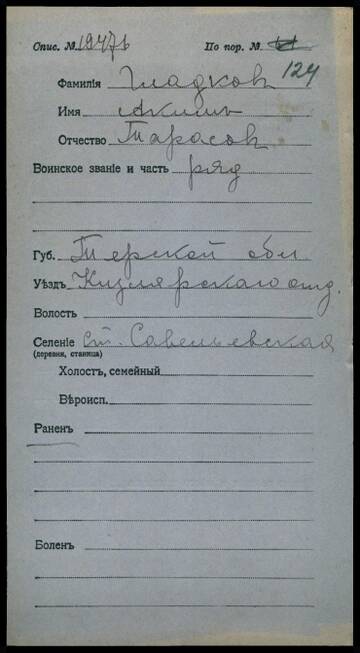 Спис. № 19476 По пор. № 124
Фамилія Гладков
Имя Акимъ
Отчество Тарасов
Воинское званіе и часть ряд
Губ. Терской обл
Уѣздъ Кизлярскаго отд.
Волость
Селеніе Ст. Савельевская
(деревня, станица)
Холостъ, семейный
Вѣроисп.
Раненъ
Боленъ